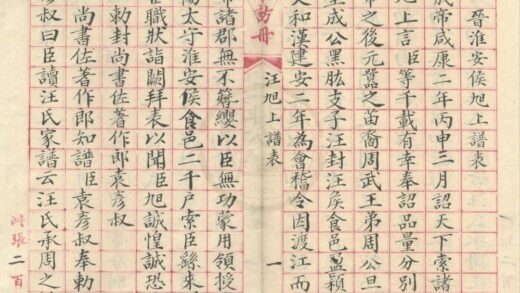 晉淮安侯旭上譜表
成帝咸康二年丙申三月詔天下索諸
旭上言臣等千載有幸奉詔品量分別
帝之後元囂之苗裔周武王弟周公旦
至成公黑肱支子汪封汪侯食邑盈穎
文和漢建安二年為會稽令因渡江而
冊
汪旭上譜表
一
帝諸郡無不簪纓以臣無功蒙用領授
陽太守淮安侯食邑二千戶索臣繇來
職狀詣闕拜表以聞臣旭誠惶誠恐
勅封尚書佐著作郎袁彥叔
尚書佐著作郎知譜臣袁彥叔奉勅
彥叔曰臣讀汪氏家譜云汪氏承周之
此張二百